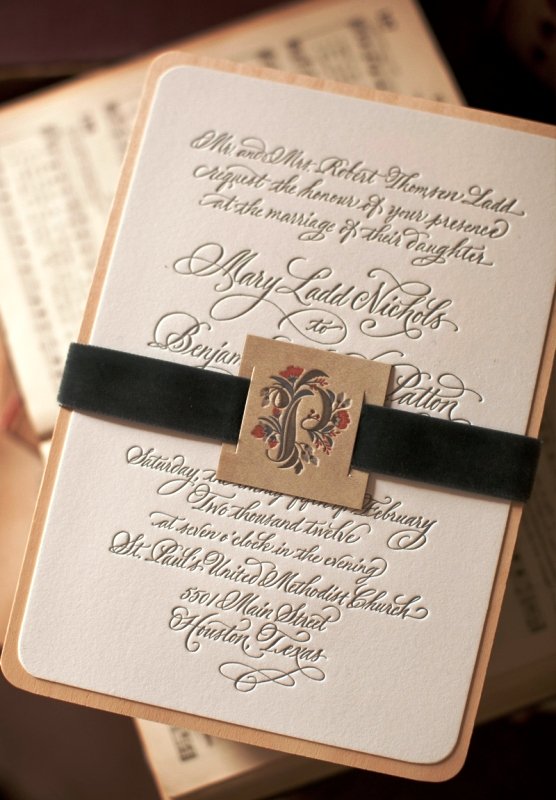 Mr. and Mrs. Robert Thomsen Ladd
request the honour of your presence
at the marriage of their daughter
Mary Ladd Nichols
to
Patton
P
Saturday, the February
Two thousand twelve
at seven o'clock in the evening
St. Paul's United Methodist Church
5501 Main Street
Houston, Texas